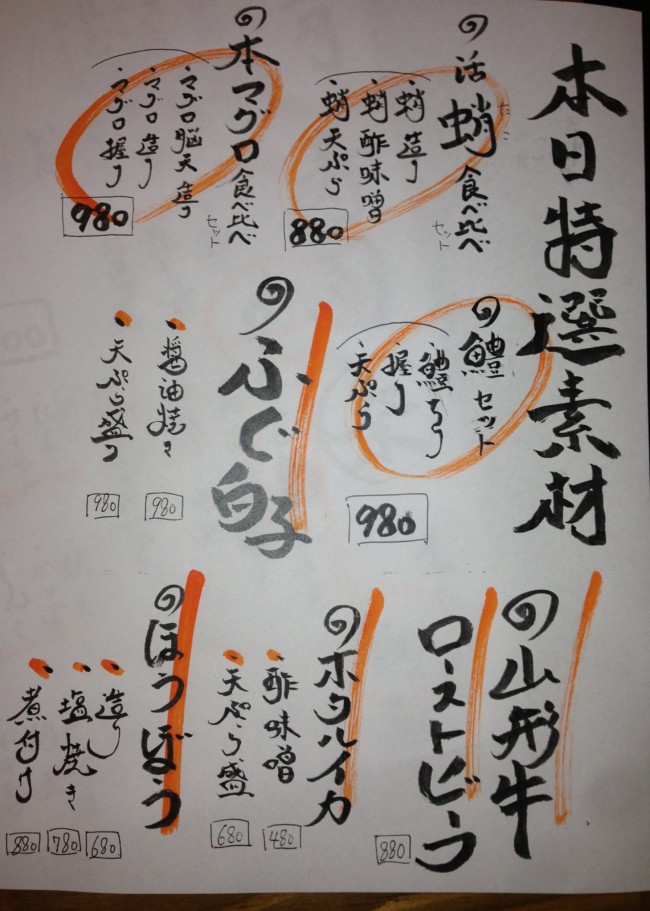 本日特選素材
活蛸食べ比べ
たこ
セット
蛸造り
蛸酢味噌
蛸天ぷら
880
本マグロ食べ比べ
セット
マグロ脳天造り
マグロ造り
マグロ握り
980
鱧セット
鱧ちり
握り
天ぷら
980
ふぐ白子
醤油焼き
980
天ぷら盛り
980
山形牛
ローストビーフ
880
ホタルイカ
酢味噌
480
天ぷら盛
680
ほうぼう
造り
680
塩焼き
780
煮付け
880